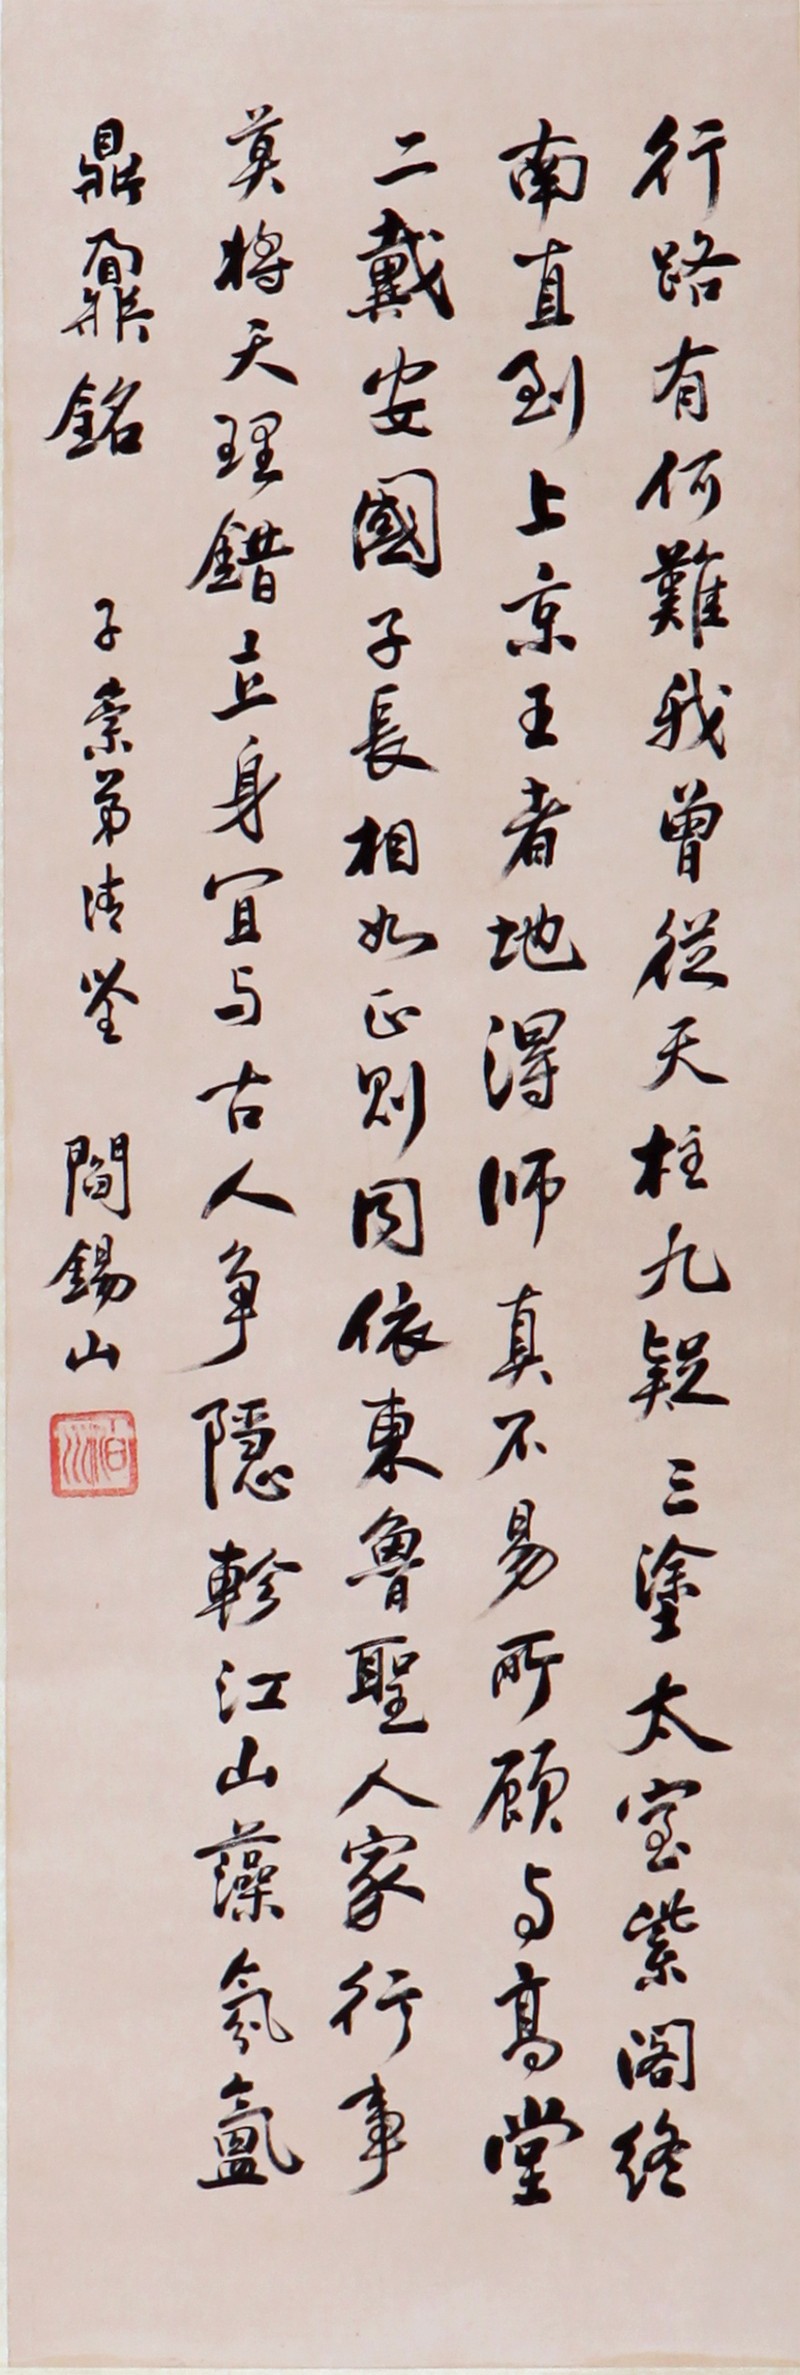 行路有何難我曾從天柱九疑三塗太室紫閣終
南直到上京王者地得師真不易所顧與高堂
二戴安國子長相如正則同依東魯聖人家行事
莫將天理錯立身宜与古人爭隱軫江山藻氛氳
鼎鼐銘 子索弟清鑒 閻錫山